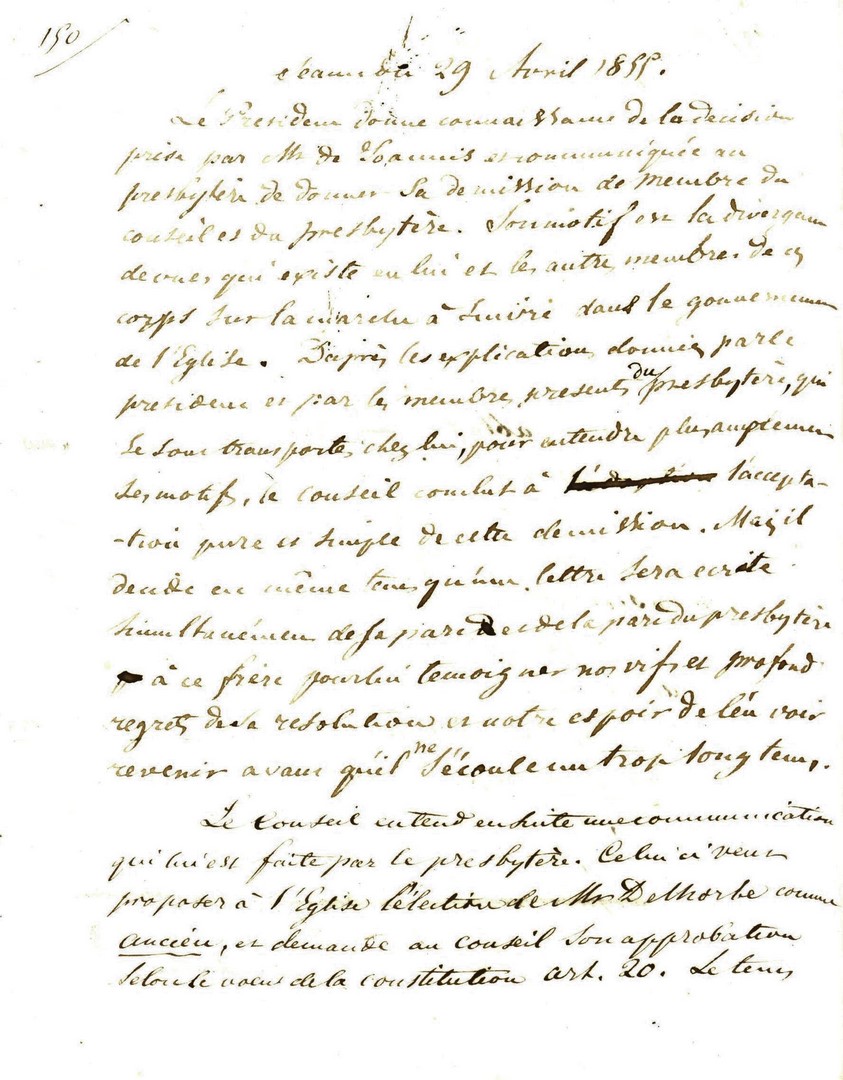 150
Séance du 29 Avril 1855.
Le President donne connaissance de la decision
prise par Mr de Joannis et communiquée au
presbytère de donner sa demission de membre du
conseil et du presbytère. Son motif est la divergence
de vues qui existe en lui et les autres membres de ce
corps sur la marche à suivre dans le gouvernement
de l'Eglise. D'après les explications donnees par le
president et par les membres presents du presbytère, qui
se sont transportes chez lui, pour entendre plus amplement
ses motifs, le conseil conclut à l'accepta-
-tion pure et simple de cette demission. Mais il
decide en même tems qu'une lettre sera ecrite
simultanément de sa part et de la part du presbytère
à ce frère pour lui temoigner nos vifs et profonds
regrets de sa resolution et notre espoir de l'en voir
revenir avant qu'il ne s'écoule un trop long tems.
Le Conseil entend ensuite une communication
qui lui est faite par le presbytère. Celui ci veut
proposer à l'Eglise l'élection de Mr Delhorbe comme
ancien, et demande au conseil son approbation
selon le voeu de la constitution art. 20. Le tems